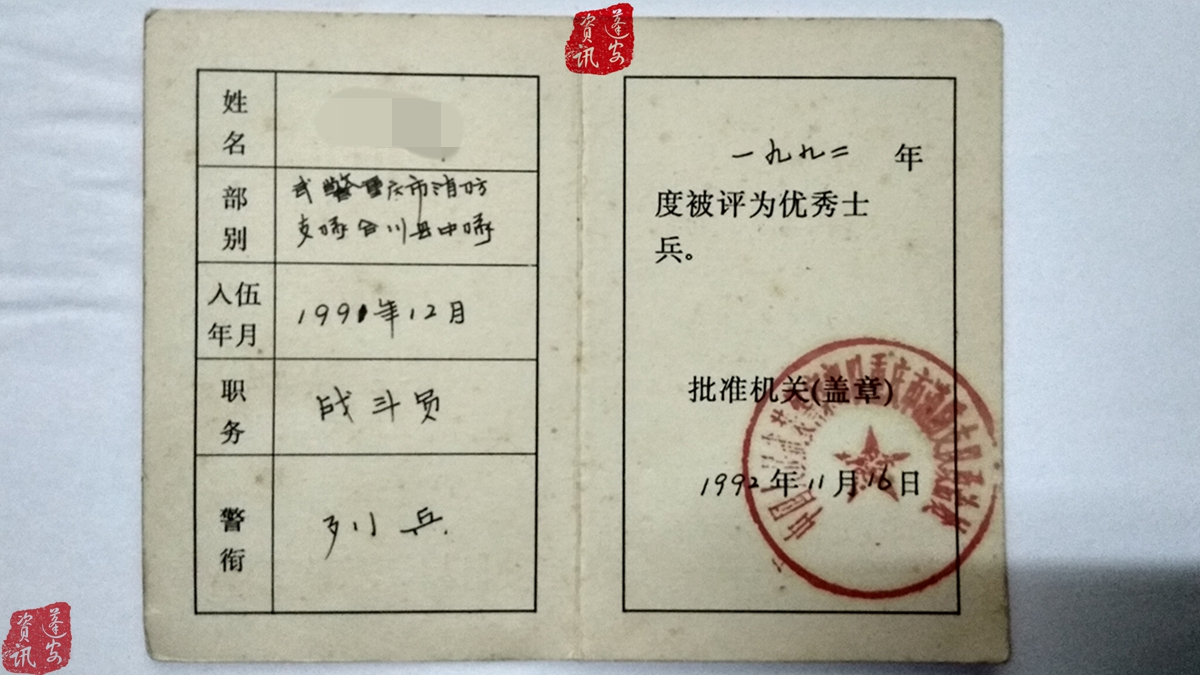 蓬安
资讯
姓名
部别
武警重庆市消防
支队合川县中队
入伍
年月
1991年12月
职务
战斗员
警衔
列兵
一九九二 年
度被评为优秀士
兵。
批准机关(盖章)
1992年11月16日
蓬安
资讯